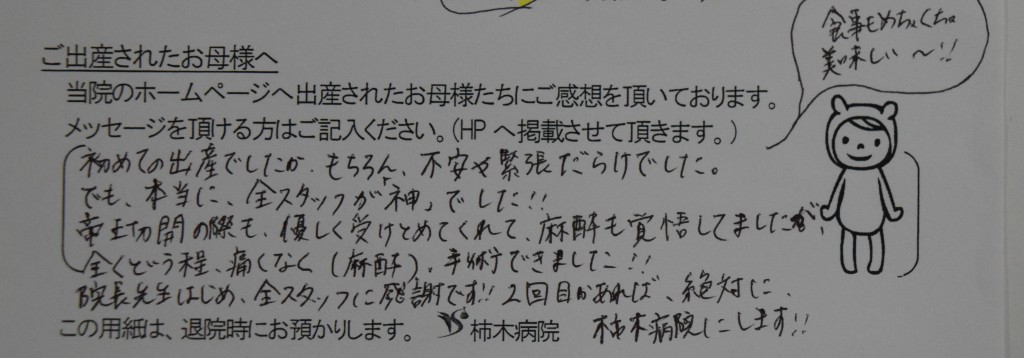 食事もめちゃくちゃ
美味しい〜!!
ご出産されたお母様へ
当院のホームページへ出産されたお母様たちにご感想を頂いております。
メッセージを頂ける方はご記入ください。(HPへ掲載させて頂きます。)
初めての出産でしたが、もちろん、不安や緊張だらけでした。
でも、本当に、全スタッフが「神」でした!!
帝王切開の際も、優しく受けとめてくれて、麻酔も覚悟してましたが、
全くという程、痛くなく(麻酔)、手術できました!!
院長先生はじめ、全スタッフに感謝です!! 2回目があれば、絶対に、
柿木病院にします!!
この用紙は、退院時にお預かりします。 柿木病院